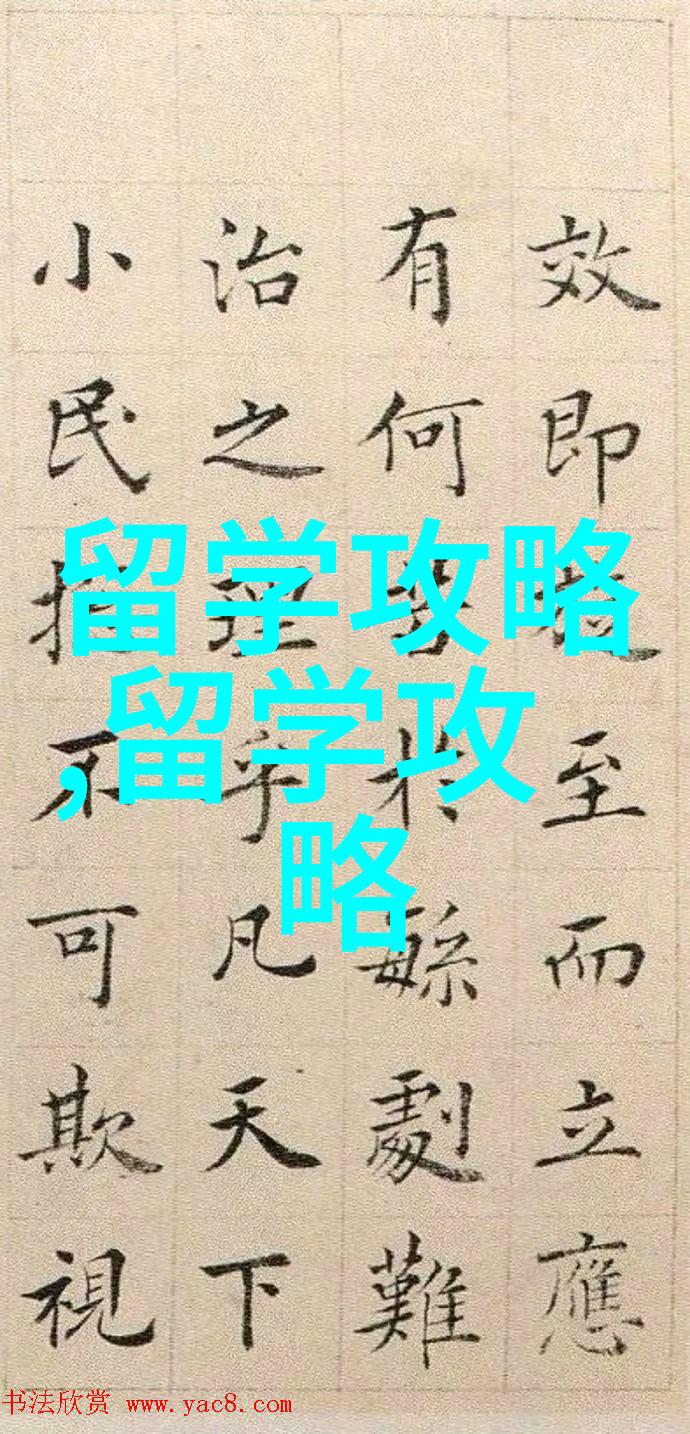 效即至而立應
有何於緐劇難
治之理乎凡天下
小民不可欺視
留学攻略
,留学攻
略
书法欣赏 www.yac8.com